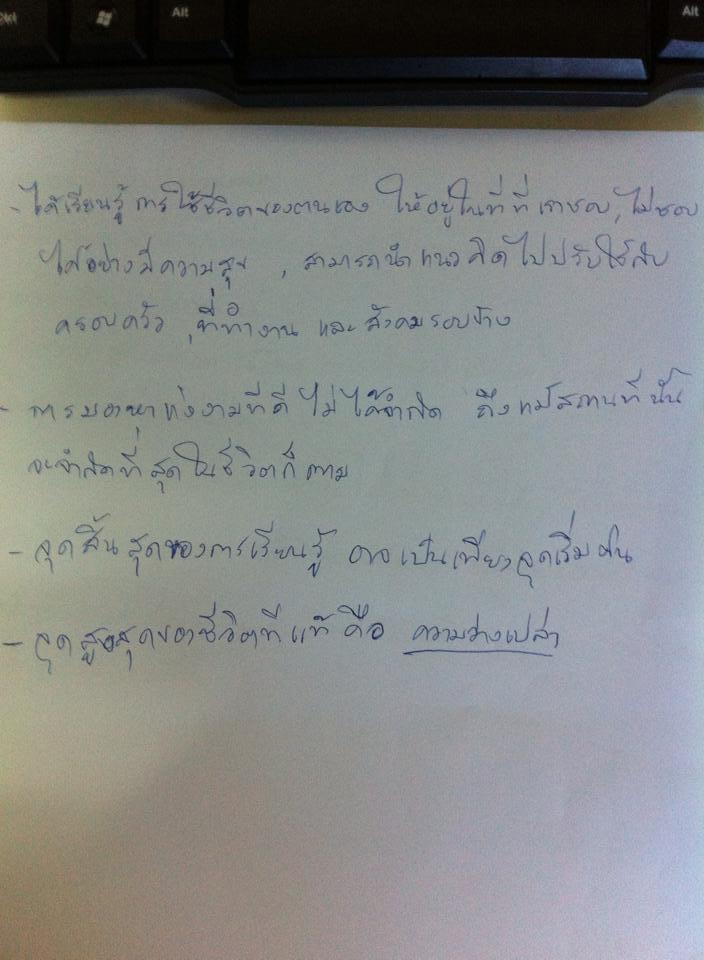 Alt
Alt
- ได้เรียนรู้ การใช้ชีวิตของตนเอง ให้อยู่ในที่ที่เราชอบ, ไม่ชอบ
ได้อย่างมีความสุข , สามารถนำแนวคิดไปปรับใช้กับ
ครอบครัว , ที่ทำงาน และ สังคมรอบข้าง
- การมองหาแง่งามที่ดี ไม่ได้จำกัด ถึงแม้สถานที่นั้น
จะจำกัดที่สุดในชีวิตก็ตาม
- จุดสิ้นสุดของการเรียนรู้ อาจเป็นเพียงจุดเริ่มต้น
- จุดสูงสุดของชีวิตที่แท้ คือ ความว่างเปล่า